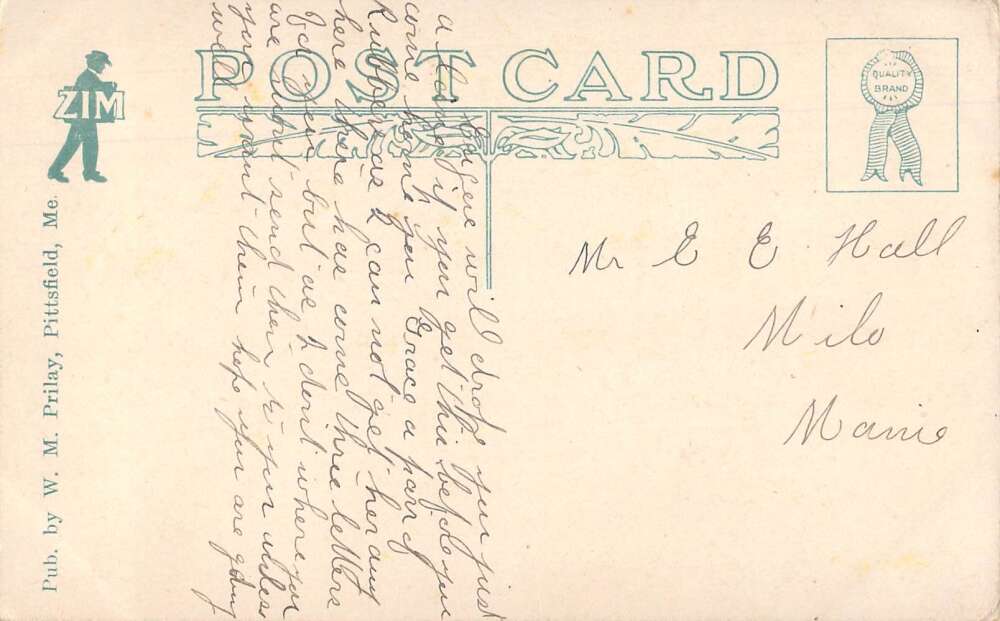 POST CARD
ZIM
QUALITY
BRAND
Pub. by W. M. Prilay, Pittsfield, Me.
Mr E E Hall
Milo
Manie
will drop you just
a if you get this before you
come home you Grace a parr of
Rubbers as I can not get her any
here there has come three letters
for you but as I dont where you
are dont send them to you unless
you want them hope you are going
well